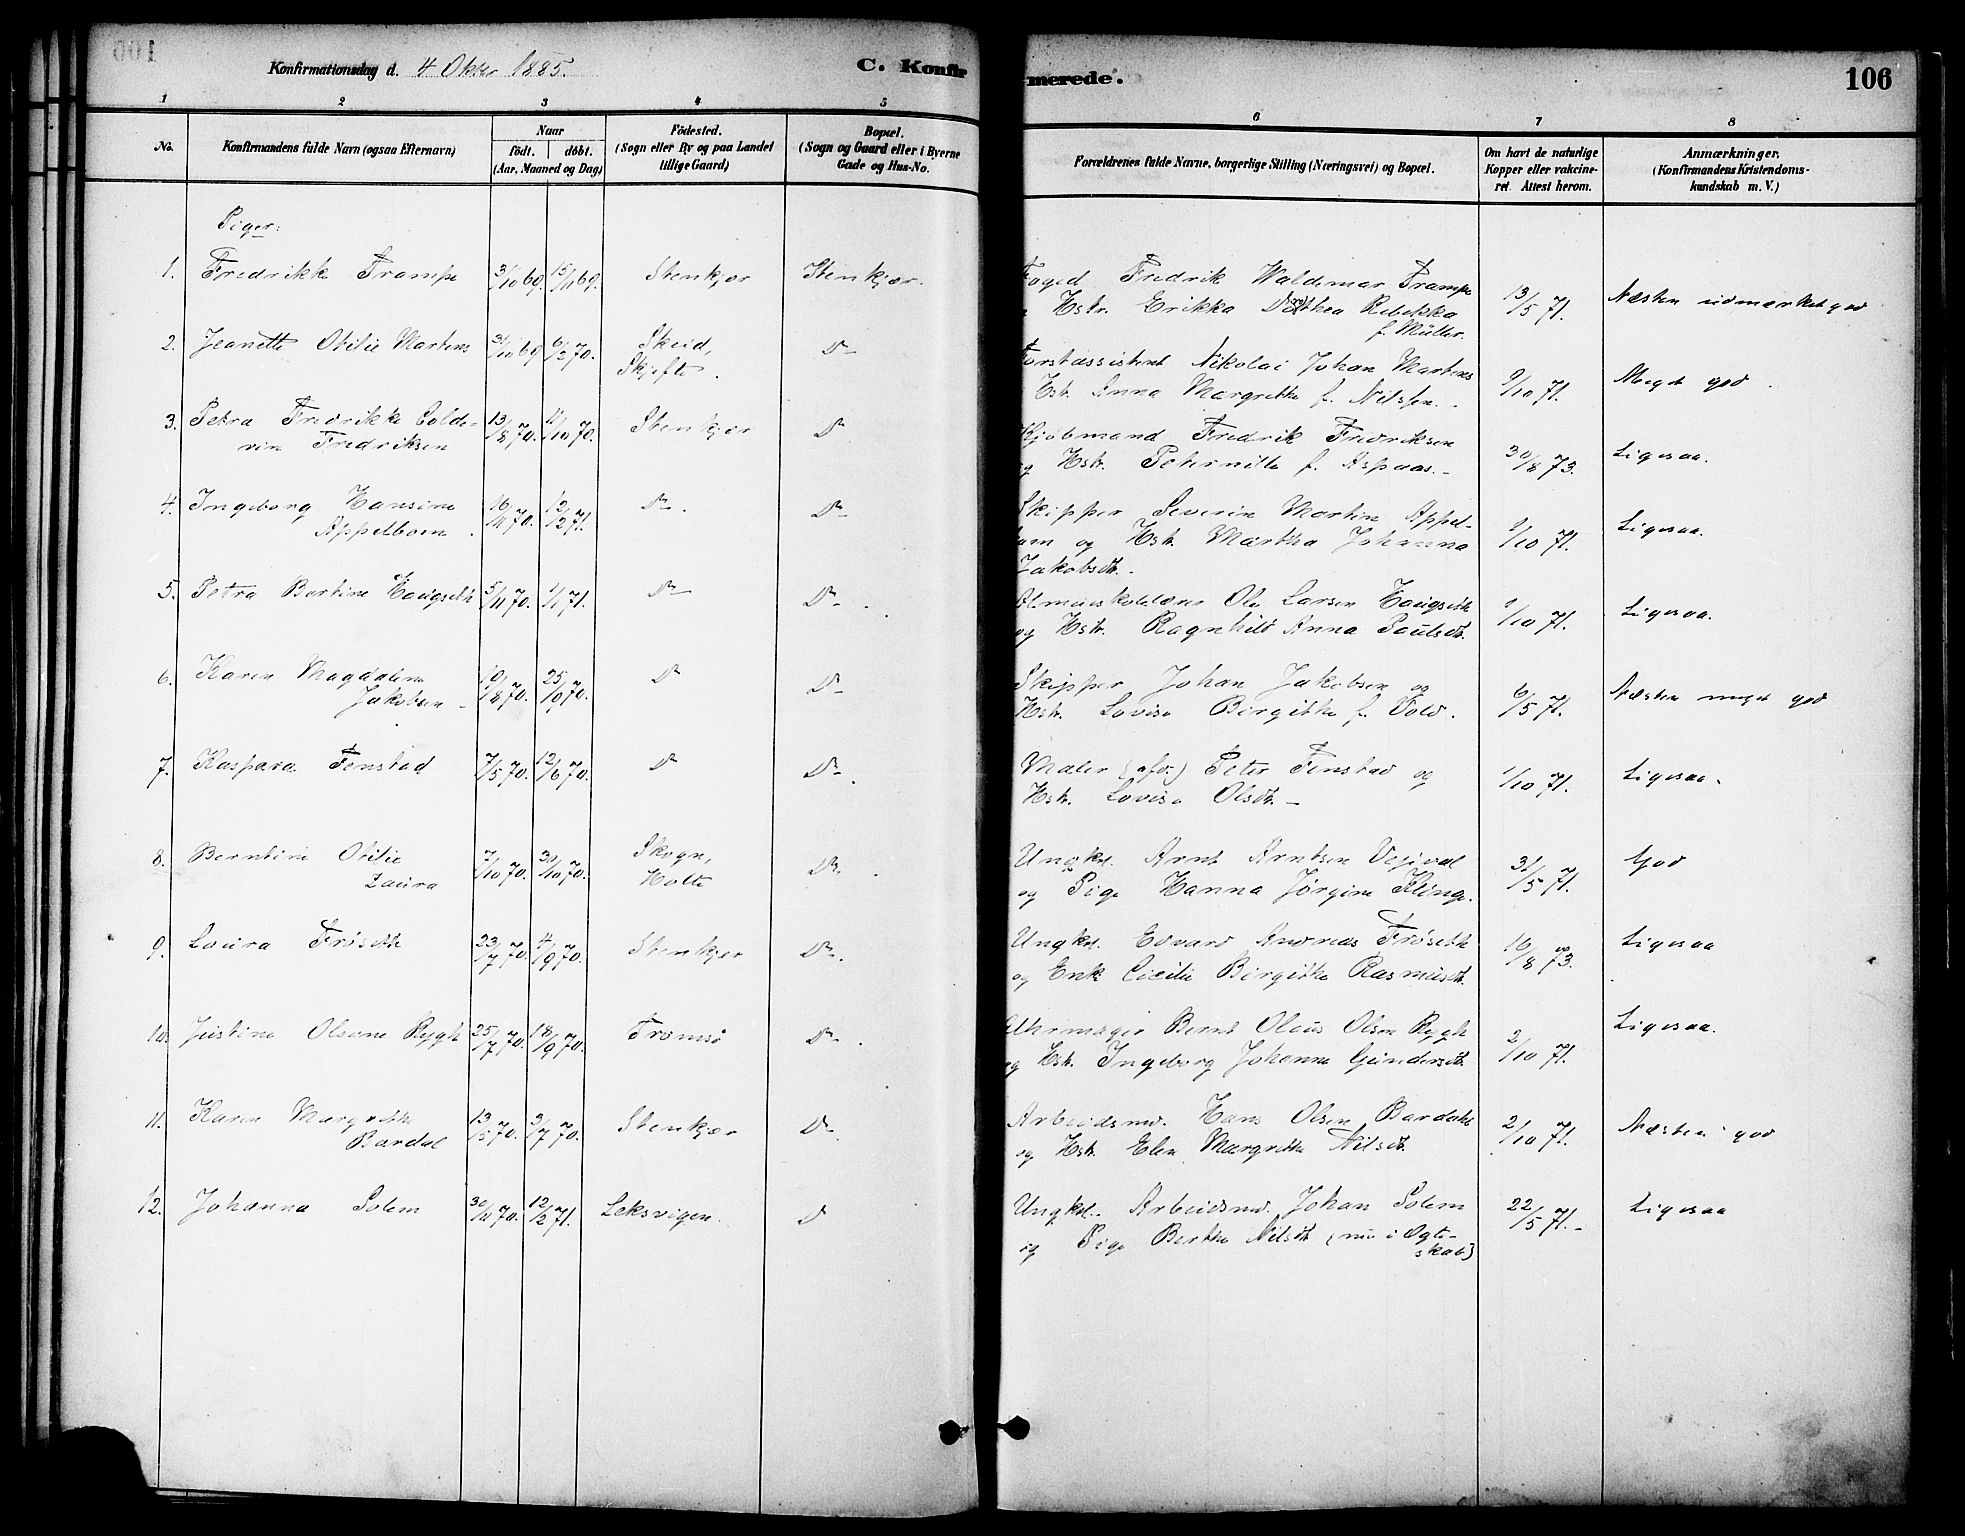 Konfirmationsdag d. 4 Oktbr 1885.
C. Konfirmerede.
106
1 2 3 4 5 6 7 8
No.
Konfirmandens fulde Navn (ogsaa Efternavn)
Naar
födt. döbt.
(Aar, Maaned og Dag)
Födested.
(Sogn eller By og paa Landet
tillige Gaard)
Bopæl.
(Sogn og Gaard eller i Byerne
Gade og Hus-No.
Forældrenes fulde Navne, borgerlige Stilling (Næringsvei) og Bopæl.
Om havt de naturlige
Kopper eller vakcine-
ret. Attest herom.
Anmærkninger.
(Konfirmandens Kristendoms-
kundskab m. V.)
Piger:
1. Fredrikke Trampe 31/10 69. 15/11 69. Stenkjær Stenkjær. Foged Fredrik Waldemar Trampe 13/5 71. Næsten udmærket god
Hstr. Erikka Dorthea Rebekka
f. Müller.
2. Jeanette Otilie Martens 31/10 69 6/2 70. Skeid, Do Forstassistent Nikolai Johan Martens 9/10 71. Meget god.
Skjefte. Hstr. Anna Margrethe f. Nilssen.
3. Petra Fredrikke Colde- 13/8 70. 11/10 70. Stenkjær Do Kjøbmand Fredrik Fredriksen 30/8 73. Ligesaa.
vin Fredriksen og Hstr. Peternille f. Aspaas.
4. Ingeborg Hansine 16/11 70. 12/2 71. Do. Do Skipper Severin Martin Appel- 1/10 71. Ligesaa.
Appelbom bom og Hstr. Martha Johanna
Jakobsdt.
5. Petra Bertine Haugseth 5/11 70. 1/1 71. Do Do. Almueskolelærer Ole Larsen Haugseth 1/10 71. Ligesaa.
og Hstr. Ragnhild Anna Paulsdt.
6. Karen Magdalena 19/8 70. 25/9 70. Do Do Skipper Johan Jakobsen og 6/5 71. Næsten meget god
Jakobsen Hstr. Lovise Birgitte f. Vold.
7. Kaspara Fenstad 7/5 70. 12/6 70. Do Do. Maler (afd.) Peter Fenstad og 1/10 71. Ligesaa.
Hstr. Lovise Olsdt.
8. Berntine Otilie 7/10 70. 30/10 70. Skogn, Do. Ungkl. Arnt Arntsen Vejival 31/5 71. God
Laura Holte og Pige Hanna Jørgine Klinge.
9. Laura Frøseth 23/7 70. 4/9 70. Stenkjær Do. Ungkl. Edvard Andreas Frøseth 16/8 73. Ligesaa
og Enk Cicilie Birgitte Rasmusdt.
10. Justine Olsine Rygh 25/7 70. 18/9 70. Tromsø Do. Uhrmager Bernt Olaus Olsen Rygh 2/10 71. Ligesaa.
og Hstr. Ingeborg Johanna Gundersdt.
11. Karen Margrethe 13/5 70. 3/7 70. Stenkjær Do. Arbeidsmd. Hans Olsen Bardahl 2/10 71. Næsten god
Bardal og Hstr. Elen Margrethe Nilsdt.
12. Johanna Solem 30/11 70. 12/2 71. Leksvigen. Do Ungkl. Arbeidsmd. Johan Solem 22/5 71. Ligesaa
og Pige Berthe Nilsdt (nu i Ægte-
skab)